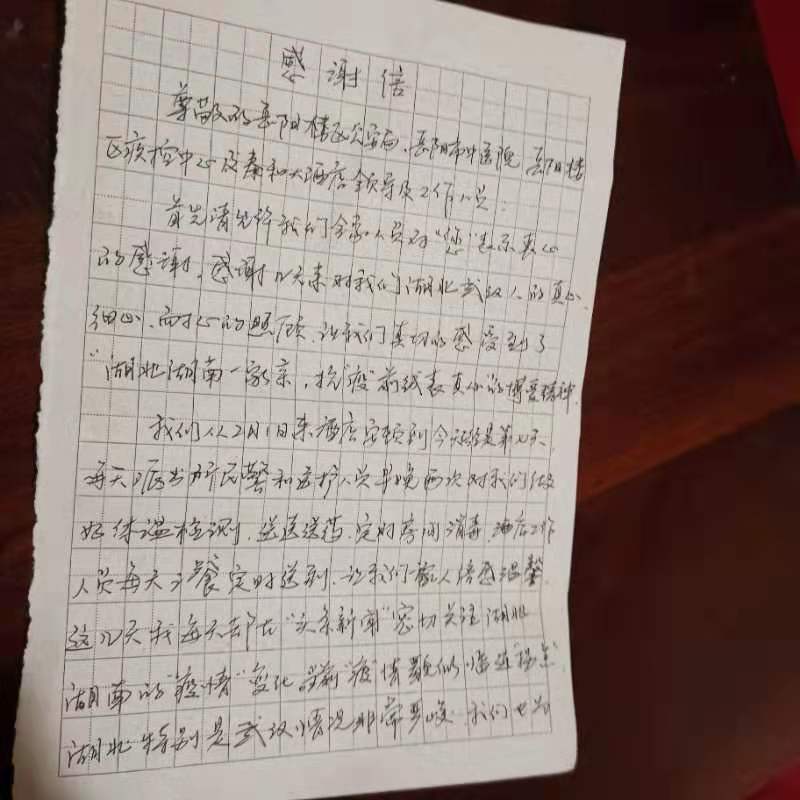 感谢信
尊敬的岳阳楼区公安局、岳阳市中医院、岳阳楼
区疾控中心及泰和大酒店领导及工作人员：
首先请允许我们全家人员对"您"表示衷心
的感谢，感谢几天来对我们湖北武汉人的真心、
细心、耐心的照顾，让我们真切的感受到了
"湖北湖南一家亲，抗"疫"前线表真心的博爱精神。
我们从2月1日来酒店安顿到今天是第七天，
每天派出所民警和医护人员早晚两次对我们做
好体温检测、送医送药、定时房间消毒，酒店工作
人员每天三餐定时送到，让我们家人倍感温馨。
这几天我每天都在"头条新闻"密切关注湖北
湖南的"疫情"变化，目前"疫"情
湖北特别是武汉情况非常严峻，我们也为